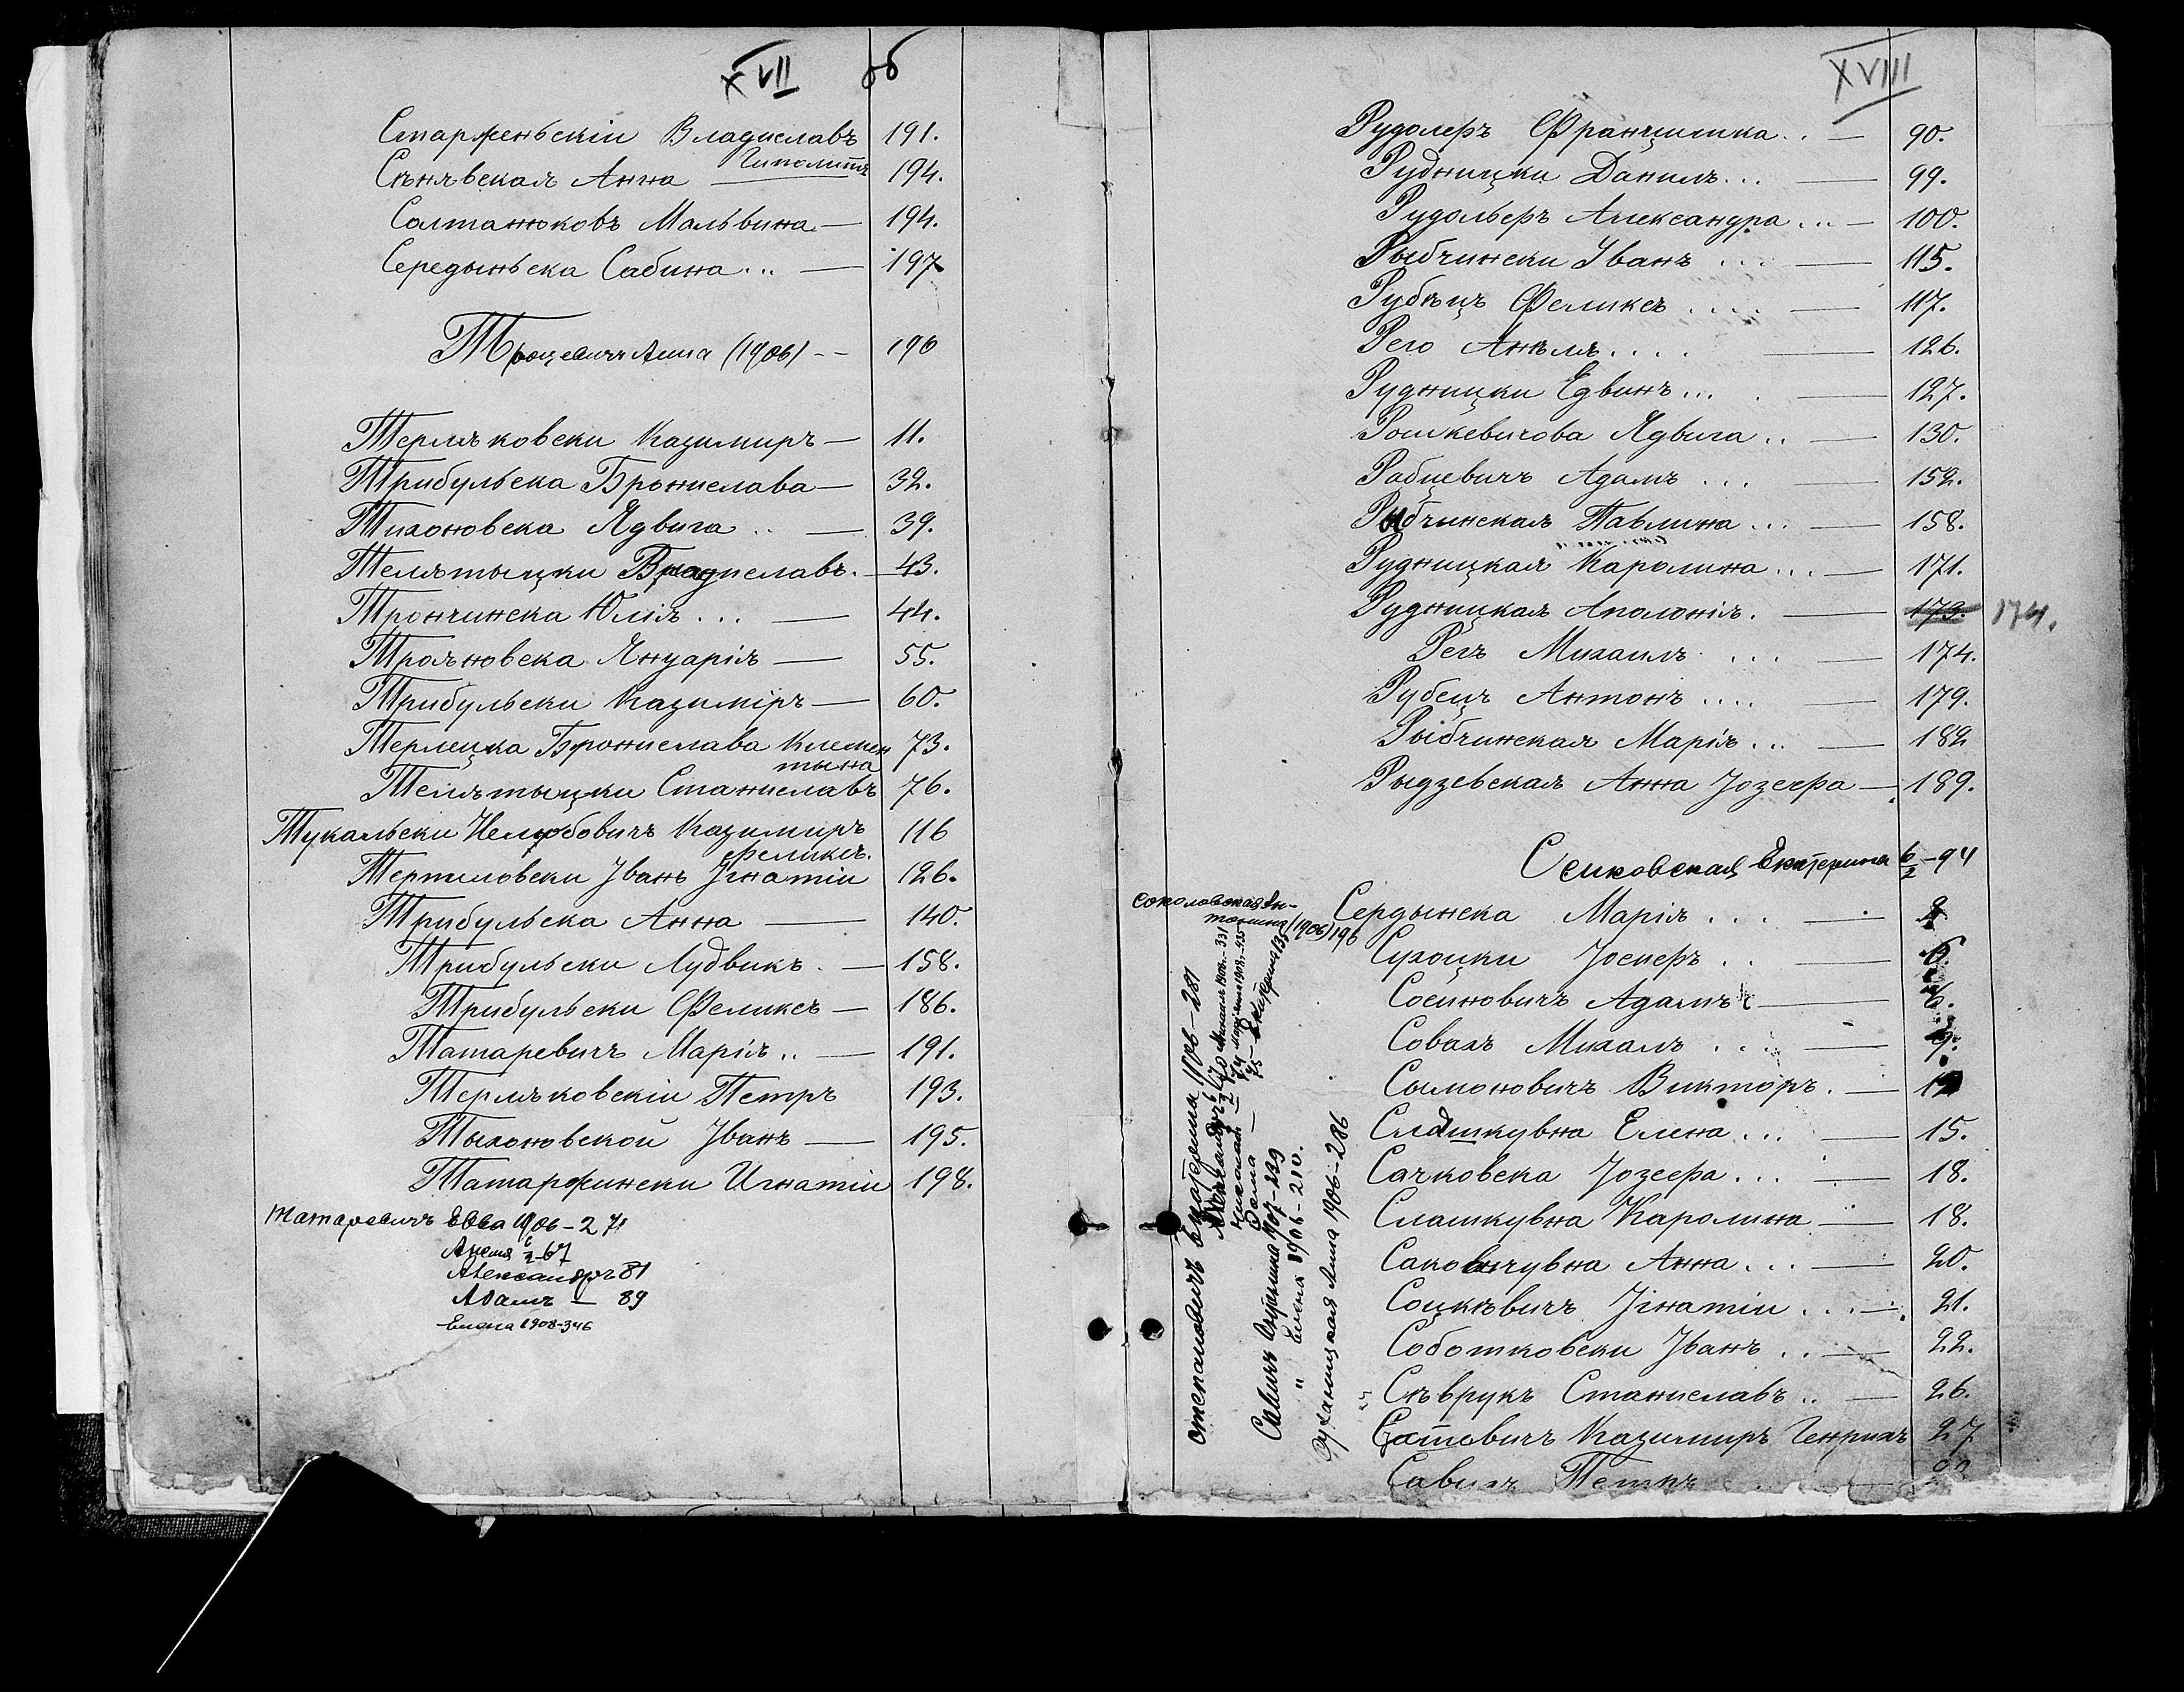 XVII об
Старженьскіи Владиславъ 191.
Гиполитъ
Сѣнявская Анна 194.
Солтанюковъ Мальвина 194.
Середыньска Сабина... 197
Троцевичъ Анна (1906) -- 196
Терляковски Казимиръ 11.
Трибульска Бронислава 32.
Тихоновска Ядвига .. 39.
Телятыцки Владиславъ. 43.
Трончинска Юлія ... 44.
Трояновска Януарія 55.
Трибульски Казиміръ 60.
Терлецка Бронислава Клемен 73.
тына
Телятыцки Станиславъ 76.
Тукальски Нелюбовичъ Казимиръ 116
Феликсъ.
Терпиловски Іванъ Игнатіи 126.
Трибульска Анна 140.
Трибульски Лудвикъ. 158.
Трибульски Феликсъ 186.
Татаревичъ Марія .. 191.
Терляковскіи Петръ 193.
Тыхоновской Іванъ 195.
Татаржински Игнатіи 198.
Татаревичъ Евва 1906-271
Анеля 6/2-67
Александръ 81
Адамъ — 89
Елена 1908-346
XVIII
Рудолеръ Францишка.. 90.
Рудницки Данилъ... 99.
Рудольфъ Александра... 100.
Рыбчински Иванъ ... 115.
Рубѣцъ Феликсъ .... 117.
Рего Анѣля.... 126.
Рудницки Едвинъ... 127.
Рошкевичова Ядвига .. 130.
Рабцевичъ Адамъ ... 152.
Рыбчинская Павлина ... 158.
Рудницкая Каролина ... 171.
Рудницкая Аполонія. 173. 174.
Регъ Михаилъ ... 174.
Рубецъ Антонъ .... 179.
Рыбчинская Марія... 182
Рыдзевская Анна Іозефа 189.
Сенковская Екатерина 6/2-94
Соколовская Ан-
тонина (1906) 196
Сердынска Марія ...
Сухоцки Іосифъ .. 6.
Сосиновичъ Адамъ 6.
Совахъ Михалъ ... 9.
Сымоновичъ Викторъ. 12
Слашкувна Елена ... 15.
Сачковска Іозефа ... 18.
Слашкувна Каролина 18.
Саковичувна Анна ... 20.
Соцкѣвичъ Ігнатіи ... 21.
Соботковски Іванъ .. 22.
Сѣврукъ Станиславъ .. 26.
Статевичъ Казимиръ Генрихъ 27
Савичъ Петръ
Степановичъ Екатерина 1906-281
Александръ 6/2 60 Михаилъ 1908.-331
Савичъ Екатерина 1907-239
" Елена 1906-210.
Суханицкая Анна 1906-286